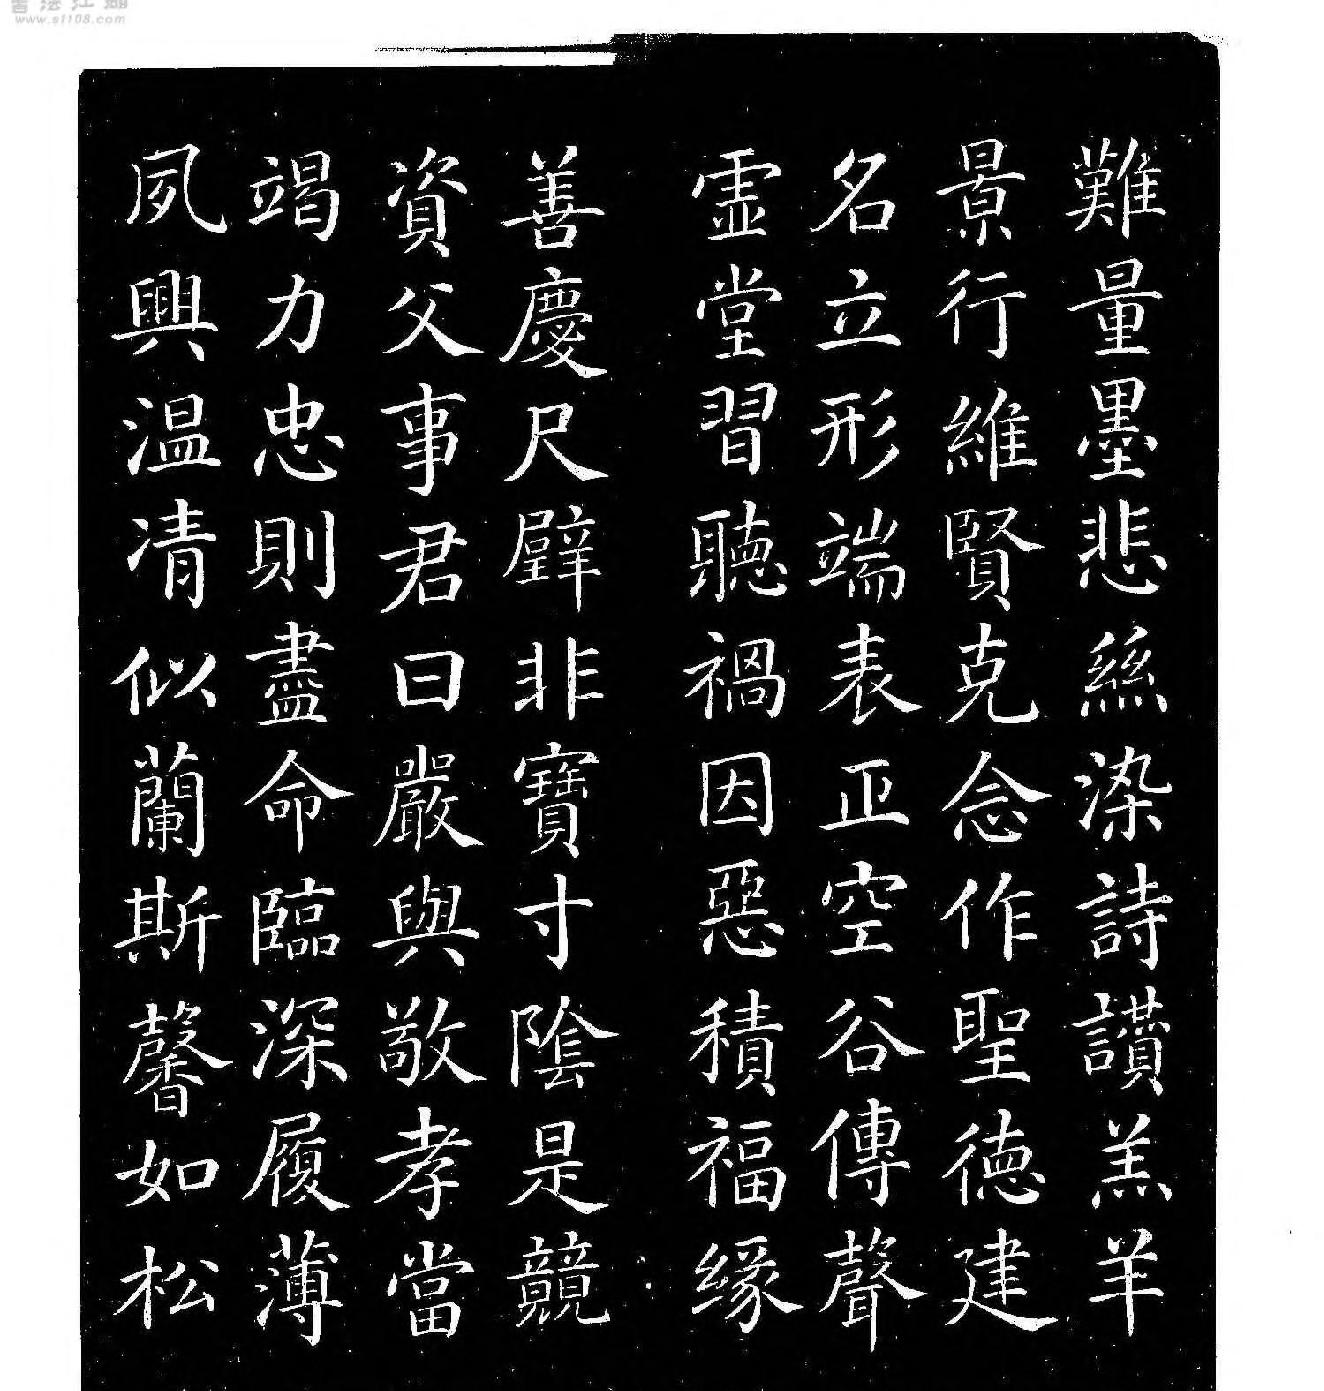 書法江湖
www.sf108.com
難量墨悲絲染詩讚羔羊
景行維賢克念作聖德建
名立形端表正空谷傳聲
虛堂習聽禍因惡積福緣
善慶尺璧非寶寸陰是競
資父事君曰嚴與敬孝當
竭力忠則盡命臨深履薄
夙興溫凊似蘭斯馨如松